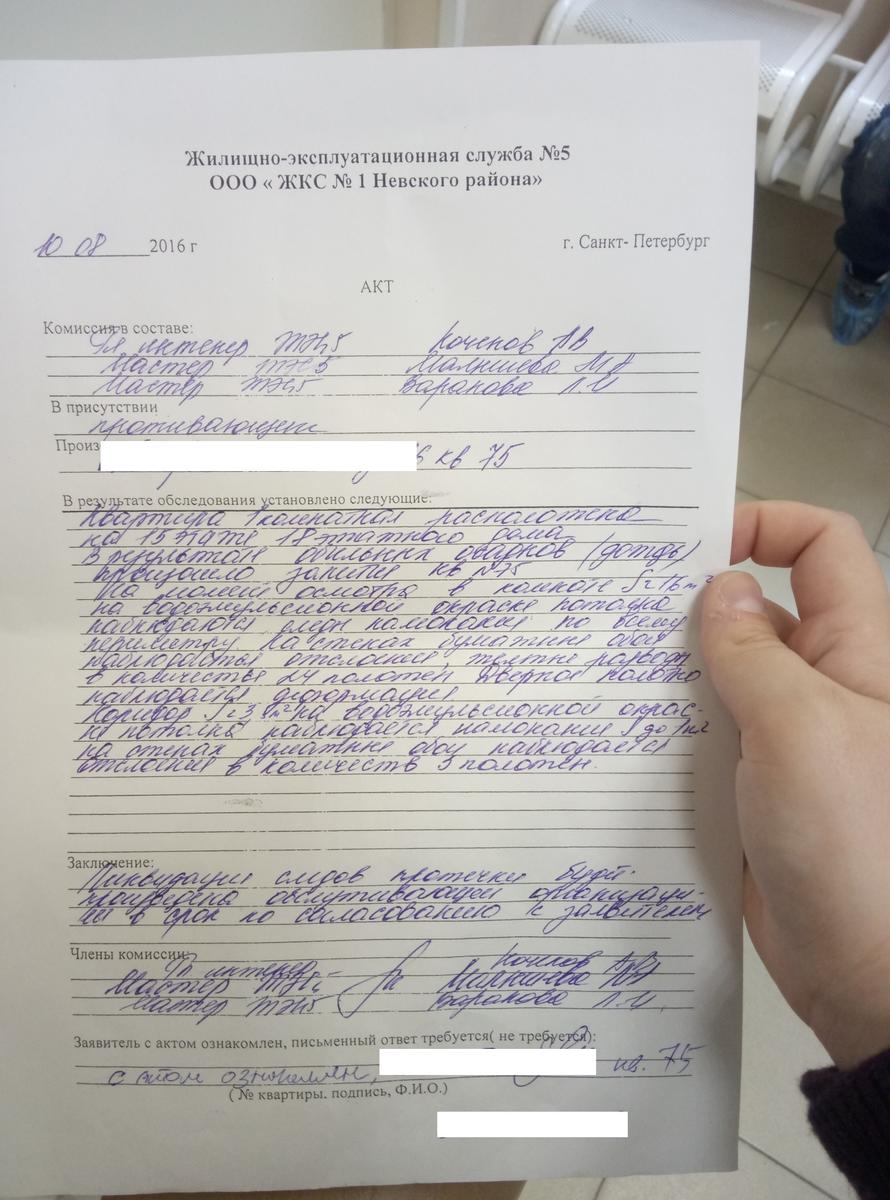 Жилищно-эксплуатационная служба №5
ООО « ЖКС № 1 Невского района»
10 08 2016 г г. Санкт- Петербург
АКТ
Комиссия в составе:
Гл инженер ЖЭС5
Мастер ЖЭС5
Мастер ЖЭС5 Баранова Л.И
В присутствии
проживающей
Произ
кв 75
В результате обследования установлено следующие:
Квартира 1комнатная расположена
на 15 этаже 18 этажного дома
В результате обильных осадков (дождь)
произошло залитие кв №75
На момент осмотра в комнате S=16 м²
на водоэмульсионной окраске потолка
наблюдаются следы намокания по всему
периметру. На стенах бумажные обои
наблюдается отслоение, желтые разводы
в количестве 24 полотен. Дверное полотно
наблюдается деформация
Коридор S=3 м² на водоэмульсионной окрас-
ке потолка наблюдается намокания S до 1м²
на стенах бумажные обои наблюдается
отслоения в количеств 3 полотен.
Заключение:
Ликвидация следов протечки будет
произведена обслуживающей организаци-
ей в срок по согласованию с заявителем
Члены комиссии:
Гл инженер
Мастер ЖЭС
Мастер ЖЭС Баранова Л.И.
Заявитель с актом ознакомлен, письменный ответ требуется( не требуется):
с актом ознакомлен, кв. 75
( № квартиры. подпись, Ф.И.О.)